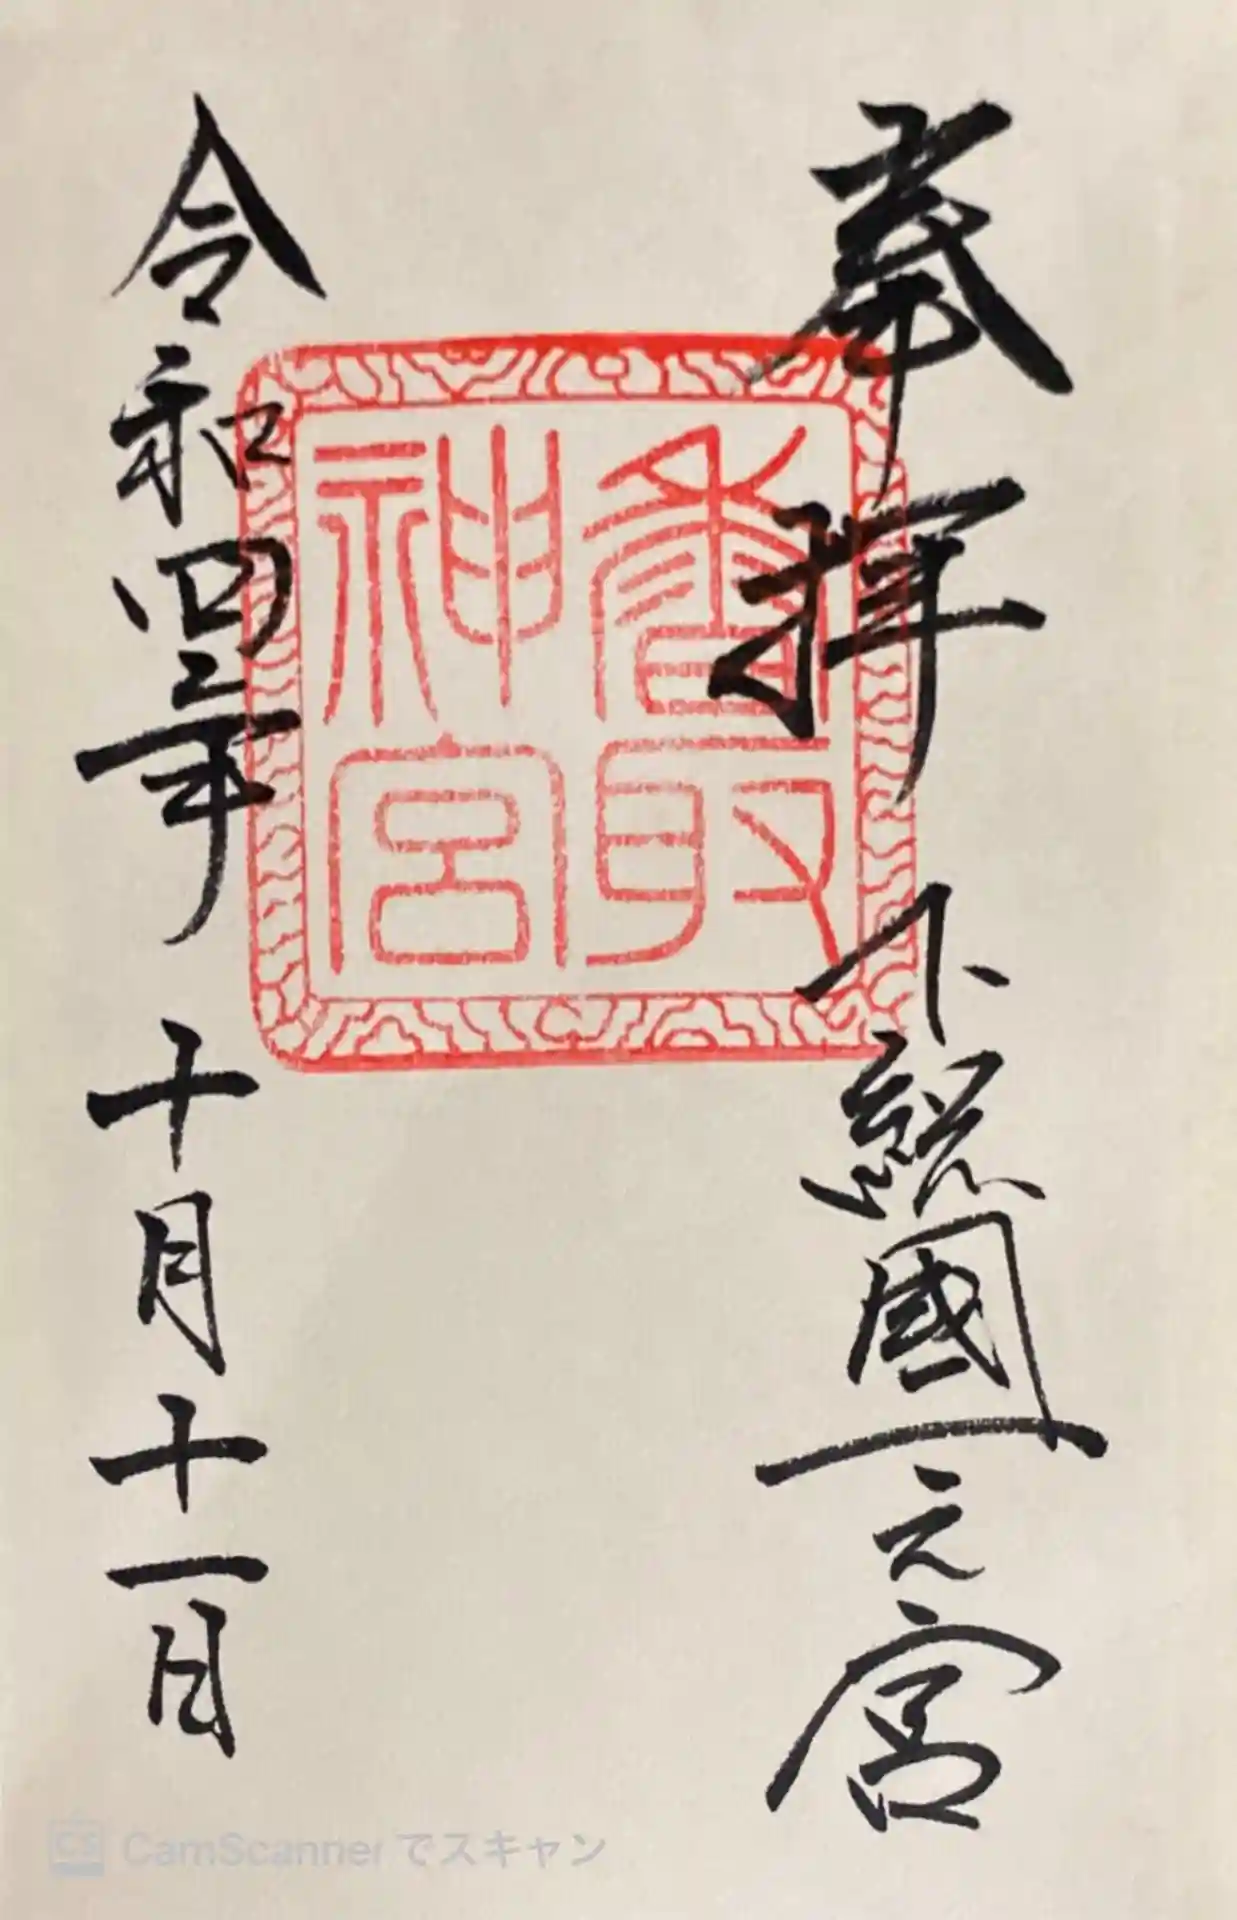 奉拝
下総國一之宮
香取
神宮
令和四年
十月十一日
CamScannerでスキャン